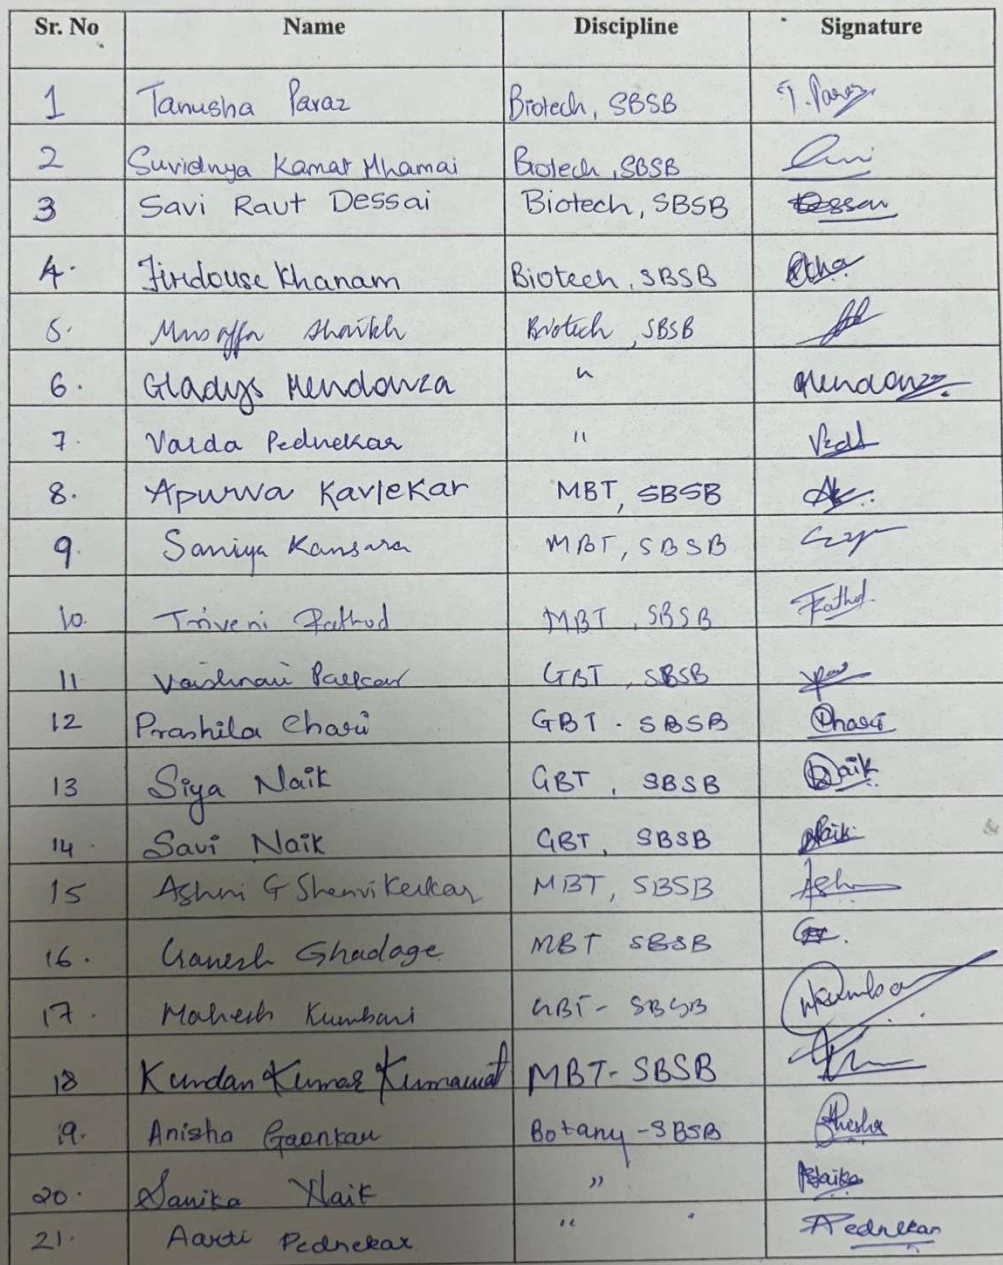 Sr. No Name Discipline Signature
1 Tanusha Paraz Biotech, SBSB T. Paraz
2 Suvidnya Kamat Mhamai Biotech, SBSB
3 Savi Raut Dessai Biotech, SBSB Dessai
4. Firdouse Khanam Biotech, SBSB
5. Shaikh Biotech, SBSB
6. Gladys Mendonza " Mendonza
7. Varda Pednekar "
8. Apurva Kavlekar MBT, SBSB
9. Saniya Kansara MBT, SBSB
10. Triveni Rathod MBT, SBSB Rathod
11 Vaishnavi GBT, SBSB
12 Prashila Chari GBT - SBSB Chari
13 Siya Naik GBT, SBSB Naik
14. Savi Naik GBT, SBSB Naik
15 Ashni G Shenvi Kerkar MBT, SBSB
16. Ganesh Ghadage MBT SBSB
17. Mahesh Kumbari GBT - SBSB
18 Kundan Kumar Kumawat MBT - SBSB
19. Anisha Gaonkar Botany - SBSB
20. Sanika Naik "
21. Aarti Pednekar " Pednekar